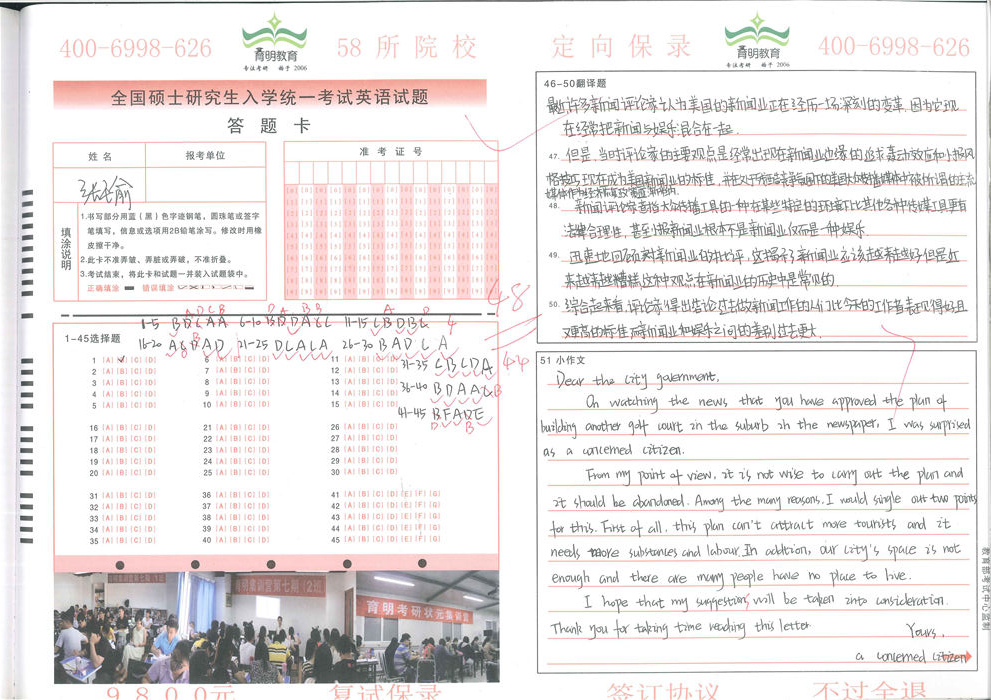 400-6998-626
育明教育
专注考研 始于2006
58所院校
定向保录
育明教育
专注考研 始于2006
400-6998-626
全国硕士研究生入学统一考试英语试题
答题卡
姓名
报考单位
准考证号
填涂说明
1.书写部分用蓝（黑）色字迹钢笔，圆珠笔或签字
笔填写，信息或选项用2B铅笔涂写。修改时用橡
皮擦干净。
2.此卡不准弄皱、弄脏或弄破，不准折叠。
3.考试结束，将此卡和试题一并装入试题袋中。
正确填涂
错误填涂
48
1-45选择题
1-5
6-10
11-15
16-20
21-25 DCACA
26-30 BADCA
31-35 CBCDA
36-40 BDAAC
41-45 BFADE
44
1 [A] [B] [C] [D]
2 [A] [B] [C] [D]
3 [A] [B] [C] [D]
4 [A] [B] [C] [D]
5 [A] [B] [C] [D]
6 [A] [B] [C] [D]
7 [A] [B] [C] [D]
8 [A] [B] [C] [D]
9 [A] [B] [C] [D]
10 [A] [B] [C] [D]
11 [A] [B] [C] [D]
12 [A] [B] [C] [D]
13 [A] [B] [C] [D]
14 [A] [B] [C] [D]
15 [A] [B] [C] [D]
16 [A] [B] [C] [D]
17 [A] [B] [C] [D]
18 [A] [B] [C] [D]
19 [A] [B] [C] [D]
20 [A] [B] [C] [D]
21 [A] [B] [C] [D]
22 [A] [B] [C] [D]
23 [A] [B] [C] [D]
24 [A] [B] [C] [D]
25 [A] [B] [C] [D]
26 [A] [B] [C] [D]
27 [A] [B] [C] [D]
28 [A] [B] [C] [D]
29 [A] [B] [C] [D]
30 [A] [B] [C] [D]
31 [A] [B] [C] [D]
32 [A] [B] [C] [D]
33 [A] [B] [C] [D]
34 [A] [B] [C] [D]
35 [A] [B] [C] [D]
36 [A] [B] [C] [D]
37 [A] [B] [C] [D]
38 [A] [B] [C] [D]
39 [A] [B] [C] [D]
40 [A] [B] [C] [D]
41 [A] [B] [C] [D] [E] [F] [G]
42 [A] [B] [C] [D] [E] [F] [G]
43 [A] [B] [C] [D] [E] [F] [G]
44 [A] [B] [C] [D] [E] [F] [G]
45 [A] [B] [C] [D] [E] [F] [G]
育明集训营第七期12班
育明考研状元集训营
9800元
复试保录
46-50翻译题
最近许多新闻评论家认为美国的新闻业正在经历一场深刻的变革，因为它现
在经常把新闻与娱乐混合在一起.
47. 但是，当时评论家的主要观点是经常出现在新闻业边缘的追求轰动效应和小报风
格技巧现在成为美国新闻业的标准
48. 新闻评论家查
法律合理性，甚至小报新闻业根本不是新闻业仅而是一种娱乐.
49.
来越来越糟糕这种观点在新闻业的历史中是常见的.
50. 综合起来看，评论家得出结论过去做新闻工作的人们比今天的工作者表现得好且
更高的标准而新闻业和娱乐之间的差别过去更大
51 小作文
Dear the city government,
On watching the news that you have approved the plan of
building another golf court in the suburb in the newspaper, I was surprised
as a concerned citizen.
From my point of view, it is not wise to carry out the plan and
it should be abandoned. Among the many reasons, I would single out two points
for this. First of all, this plan can't attract more tourists and it
needs more substances and labour. In addition, our city's space is not
enough and there are many people have no place to live.
I hope that my suggestions will be taken into consideration.
Thank you for taking time reading this letter.
Yours,
a concerned citizen
教育部考试中心监制
签订协议
不过全退